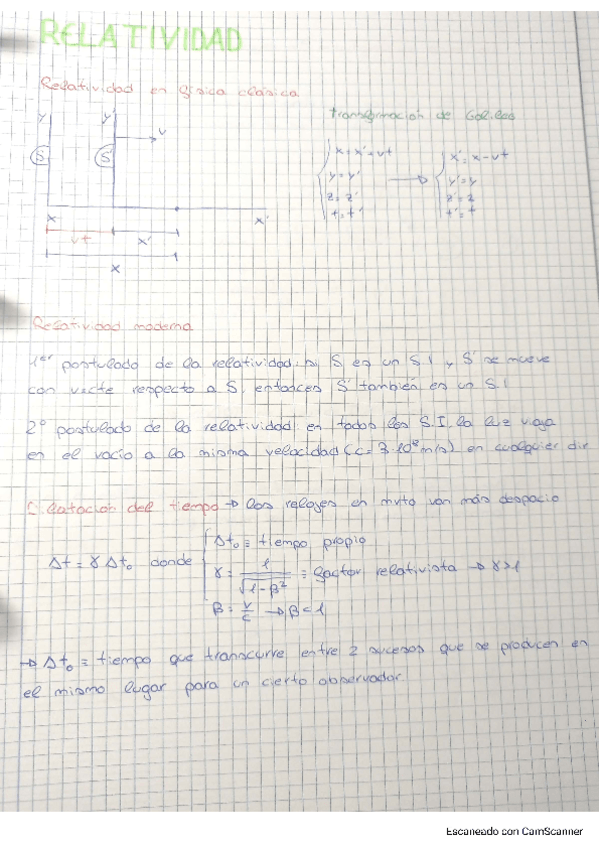 RELATIVIDAD
Relatividad en física clásica
Transformación de Galileo
y
y'
v
S
S'
x = x' + vt
y = y'
z = z'
t = t'
x' = x - vt
y' = y
z' = z
t' = t
x
x'
vt
x'
x
Relatividad moderna
1er postulado de la relatividad: si S es un S.I y S' se mueve
con v=cte respecto a S, entonces S' también es un S.I
2º postulado de la relatividad: en todos los S.I. la luz viaja
en el vacío a la misma velocidad (c = 3·10⁸ m/s) en cualquier dir
Dilatación del tiempo → los relojes en mvto van más despacio
Δt = γ Δt₀ donde
Δt₀ = tiempo propio
γ = 1/√(1-β²) = factor relativista → γ>1
β = v/c → β<1
→ Δt₀ = tiempo que transcurre entre 2 sucesos que se producen en
el mismo lugar para un cierto observador
Escaneado con CamScanner